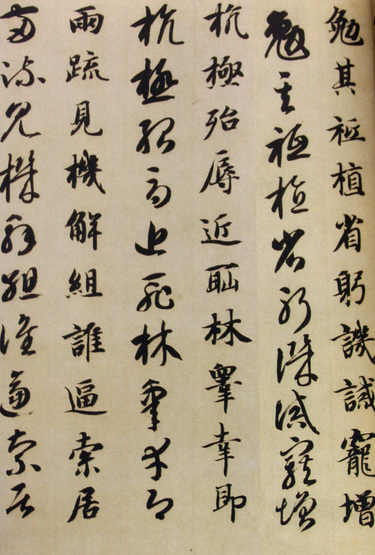 勉其祗植省躬譏誡寵增
勉其祗植省躬譏誡寵增
抗極殆辱近恥林皋幸即
抗極殆辱近恥林皋幸即
兩疏見機解組誰逼索居
兩疏見機解組誰逼索居